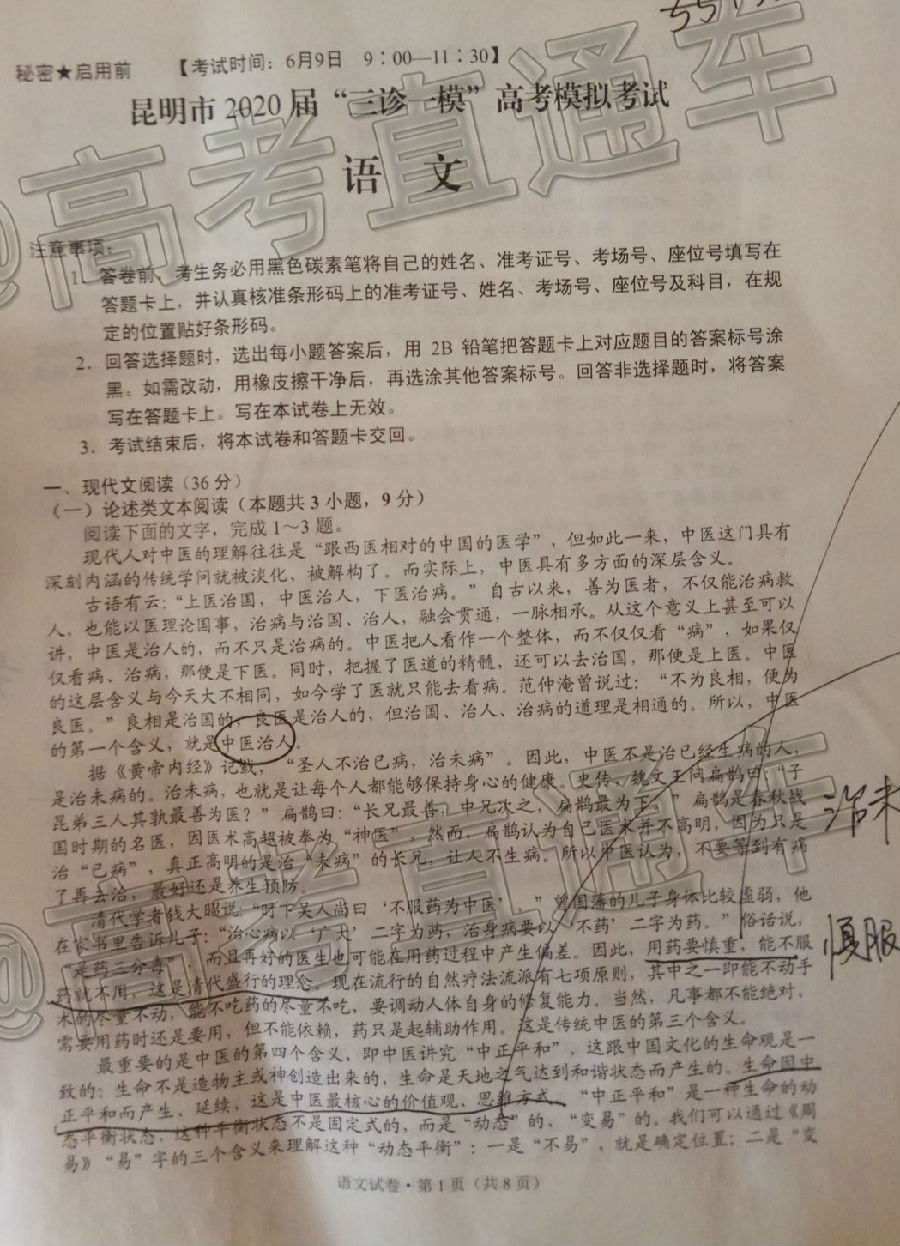 秘密★启用前 【考试时间：6月9日 9：00—11：30】
昆明市 2020 届“三诊一模”高考模拟考试
语 文
注意事项：
1．答卷前，考生务必用黑色碳素笔将自己的姓名、准考证号、考场号、座位号填写在
答题卡上，并认真核准条形码上的准考证号、姓名、考场号、座位号及科目，在规
定的位置贴好条形码。
2．回答选择题时，选出每小题答案后，用 2B 铅笔把答题卡上对应题目的答案标号涂
黑。如需改动，用橡皮擦干净后，再选涂其他答案标号。回答非选择题时，将答案
写在答题卡上。写在本试卷上无效。
3．考试结束后，将本试卷和答题卡交回。
一、现代文阅读（36 分）
（一）论述类文本阅读（本题共 3 小题，9 分）
阅读下面的文字，完成 1～3 题。
现代人对中医的理解往往是“跟西医相对的中国的医学”，但如此一来，中医这门具有
深刻内涵的传统学问就被淡化、被解构了。而实际上，中医具有多方面的深层含义。
古语有云：“上医治国，中医治人，下医治病。”自古以来，善为医者，不仅能治病救
人，也能以医理论国事，治病与治国、治人，融会贯通，一脉相承。从这个意义上甚至可以
讲，中医是治人的，而不只是治病的。中医把人看作一个整体，而不仅仅看“病”，如果仅
仅看病、治病，那便是下医。同时，把握了医道的精髓，还可以去治国，那便是上医。中医
的这层含义与今天大不相同，如今学了医就只能去看病。范仲淹曾说过：“不为良相，便为
良医。”良相是治国的，良医是治人的，但治国、治人、治病的道理是相通的。所以，中医
的第一个含义，就是中医治人。
据《黄帝内经》记载，“圣人不治已病，治未病”。因此，中医不是治已经生病的人，
是治未病的。治未病，也就是让每个人都能够保持身心的健康。史传，魏文王问扁鹊曰：“子
昆弟三人其孰最善为医？”扁鹊曰：“长兄最善，中兄次之，扁鹊最为下。”扁鹊是春秋战
国时期的名医，因医术高超被奉为“神医”，然而，扁鹊认为自己医术并不高明，因为只是
治“已病”，真正高明的是治“未病”的长兄，让人不生病。所以中医认为，不要等到有病
了再去治，最好还是养生预防。
清代学者钱大昭说：“时下吴人尚曰‘不服药为中医’。”曾国藩的儿子身体比较虚弱，他
在家书里告诉儿子：“治心病以‘广大’二字为药，治身病要以‘不药’二字为药。”俗话说，
“是药三分毒”；而且再好的医生也可能在用药过程中产生偏差。因此，用药要慎重，能不服
药就不用，这是清代盛行的理念。现在流行的自然疗法流派有七项原则，其中之一即能不动手
术的尽量不动，能不吃药的尽量不吃，要调动人体自身的修复能力。当然，凡事都不能绝对，
需要用药时还是要用，但不能依赖，药只是起辅助作用。这是传统中医的第三个含义。
最重要的是中医的第四个含义，即中医讲究“中正平和”。这跟中国文化的生命观是一
致的：生命不是造物主或神创造出来的，生命是天地之气达到和谐状态而产生的。生命因中
正平和而产生、延续，这是中医最核心的价值观、思维方式。“中正平和”是一种生命的动
态平衡状态，这种平衡状态不是固定式的，而是“动态”的、“变易”的。我们可以通过《周
易》“易”字的三个含义来理解这种“动态平衡”：一是“不易”，就是确定位置；二是“变
语文试卷·第 1 页（共 8 页）
治未
慎服
@高考直通车
@高考直通车